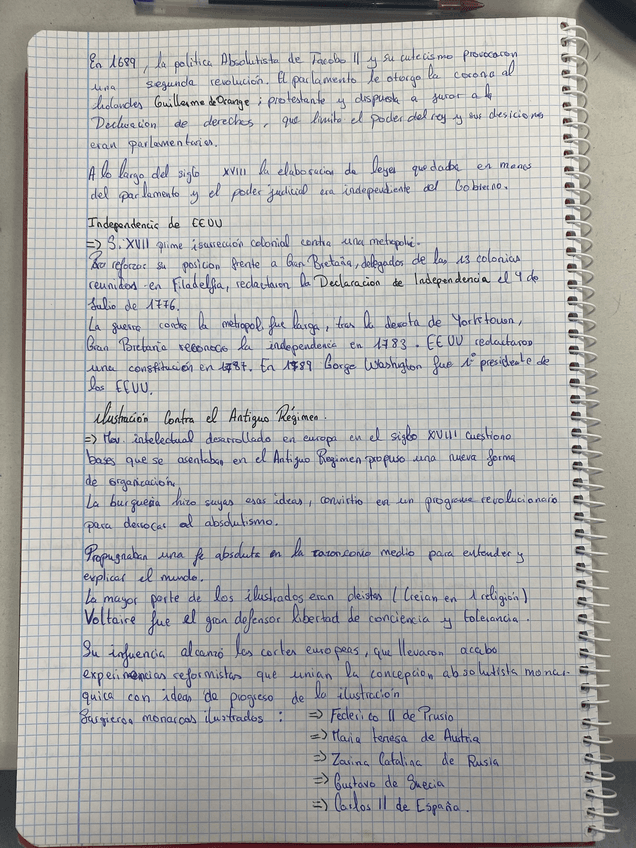 En 1689, la politica Absolutista de Jacobo II y su catecismo provocaron
una segunda revolución. El parlamento le otorgo la corona al
holandes Guillermo de Orange; protestante y dispuesto a jurar a la
Declaracion de derechos, que limito el poder del rey y sus desiciones
eran parlamentarias.
A lo largo del siglo XVIII la elaboracion de leyes quedaba en manos
del parlamento y el poder judicial era independiente del Gobierno.
Independencia de EEUU
=> S. XVII prime isurrección colonial contra una metropoli.
reforzar su posicion frente a Gran Bretaña, delegados de las 13 colonias
reunidos en Filadelfia, redactaron la Declaración de Independencia el 4 de
Julio de 1776.
La guerra contra la metropol. fue larga, tras la derrota de Yorkstown,
Gran Bretaña reconocio la independencia en 1783. EEUU redactaron
una constitución en 1787. En 1789 George Washigton fue 1º presidente de
los EEUU.
ilustración Contra el Antiguo Régimen.
=> Mov. intelectual desarrollado en europa en el siglo XVIII cuestiono
bases que se asentaban en el Antiguo Regimen propuso una nueva forma
de organización.
La burguesia hizo suyas esas ideas, convirtio en un programa revolucionario
para derrocar al absolutismo.
Propugnaban una fe absoluta en la razon como medio para entender y
explicar el mundo.
La mayor parte de los ilustrados eran deistas (Creian en 1 religión)
Voltaire fue el gran defensor libertad de conciencia y tolerancia.
Su influencia alcanzó las cortes europeas, que llevaron acabo
experiencias reformistas que unian la concepcion absolutista monar-
quica con ideas de progreso de la ilustración
Surgieron monarcas ilustrados : => Federico II de Prusia
=> Maria teresa de Austria
=> Zarina Catalina de Rusia
=> Gustavo de Suecia
=> Carlos II de España.